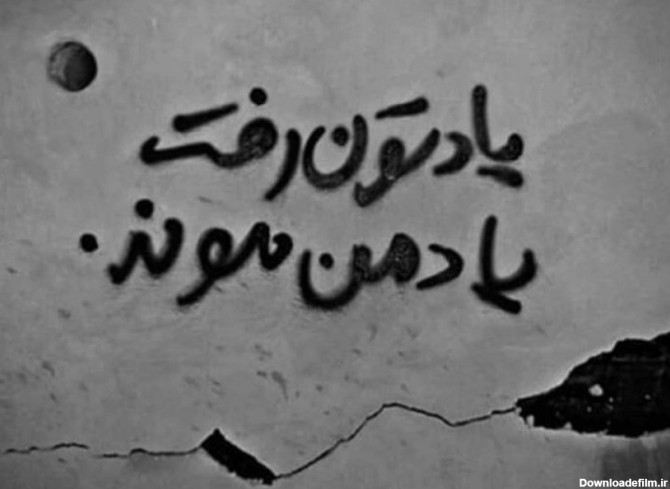 یادتون رفت
یاد من موند.
Downloadefilm.ir